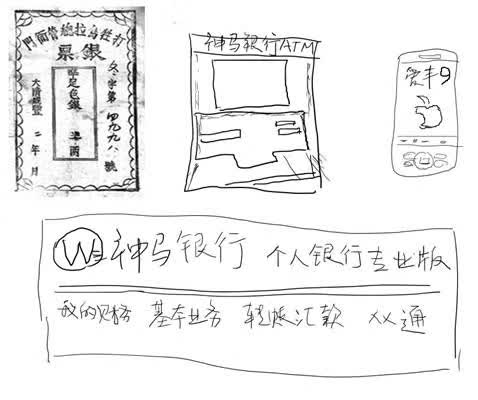 打牲烏拉總管衙門
銀票
字第四九九八號
足色銀 兩
大清 二年 月
神马银行ATM
爱丰9
W 神马银行 个人银行专业版
我的财务 基本业务 转账汇款 XX通